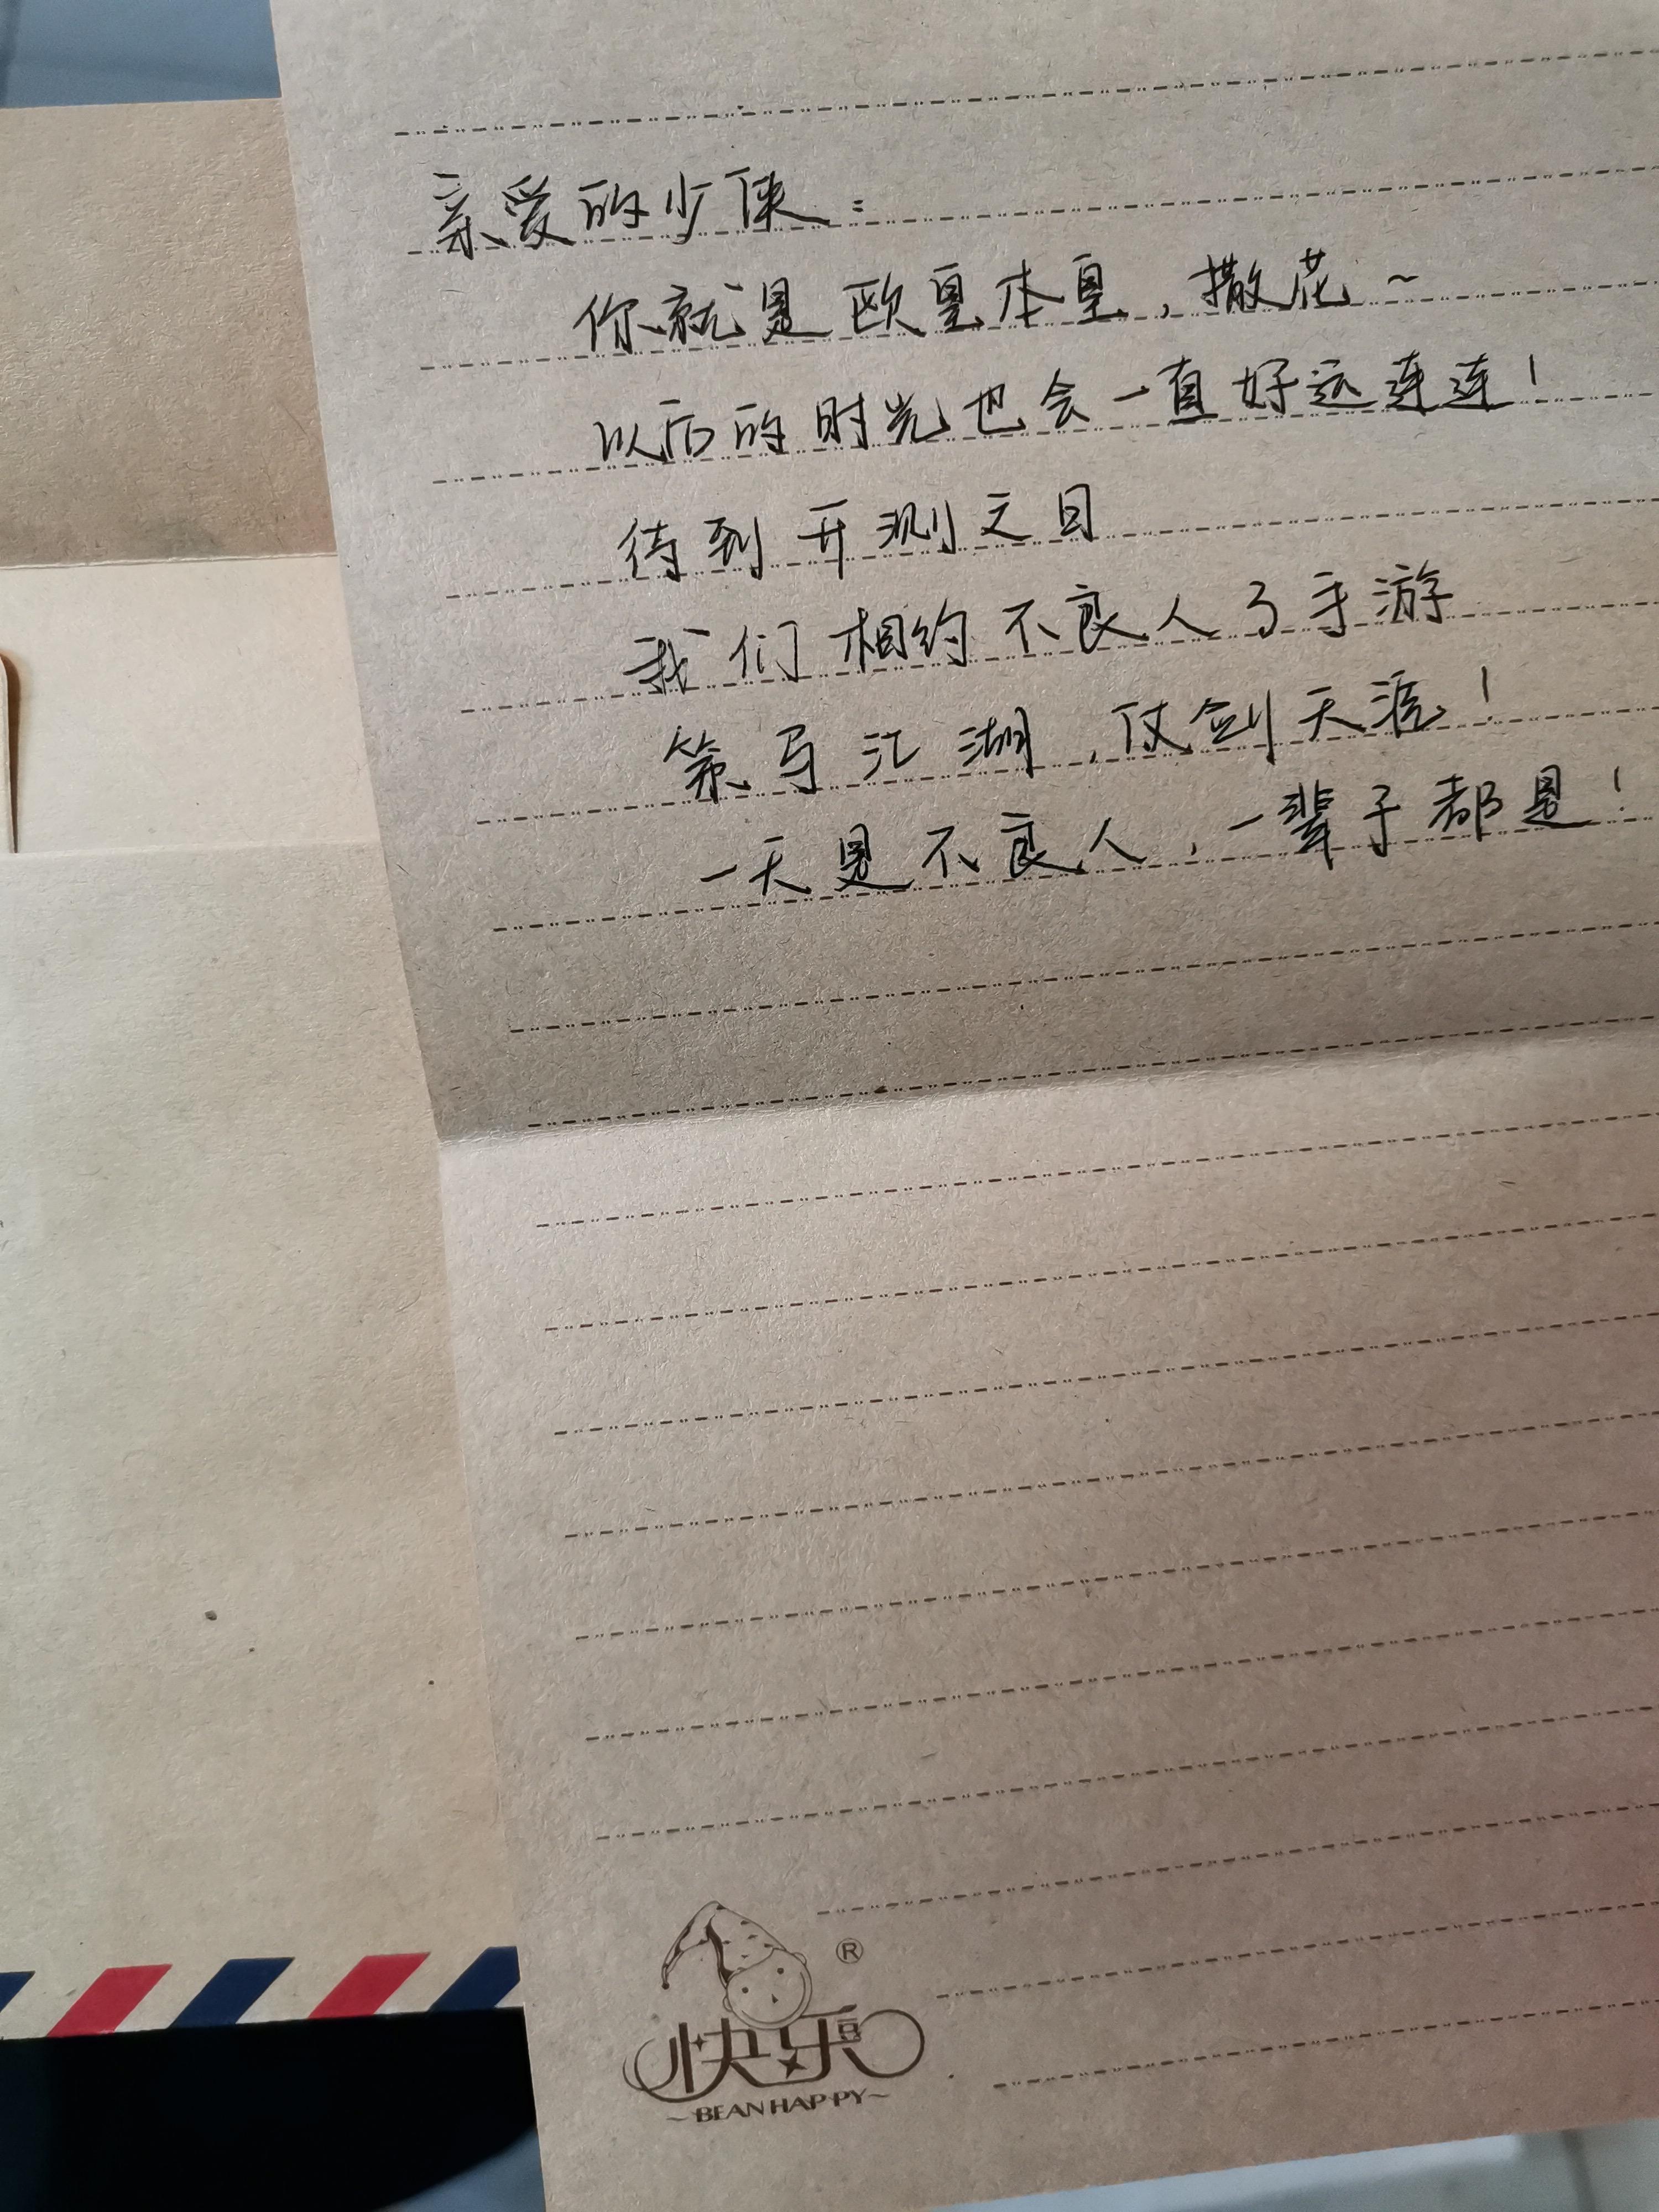 亲爱的少侠：
你就是欧皇本皇，撒花~
以后的时光也会一直好运连连！
待到开测之日
我们相约不良人3手游
策马江湖，仗剑天涯！
一天是不良人，一辈子都是！
®
快乐豆
~BEAN HAPPY~